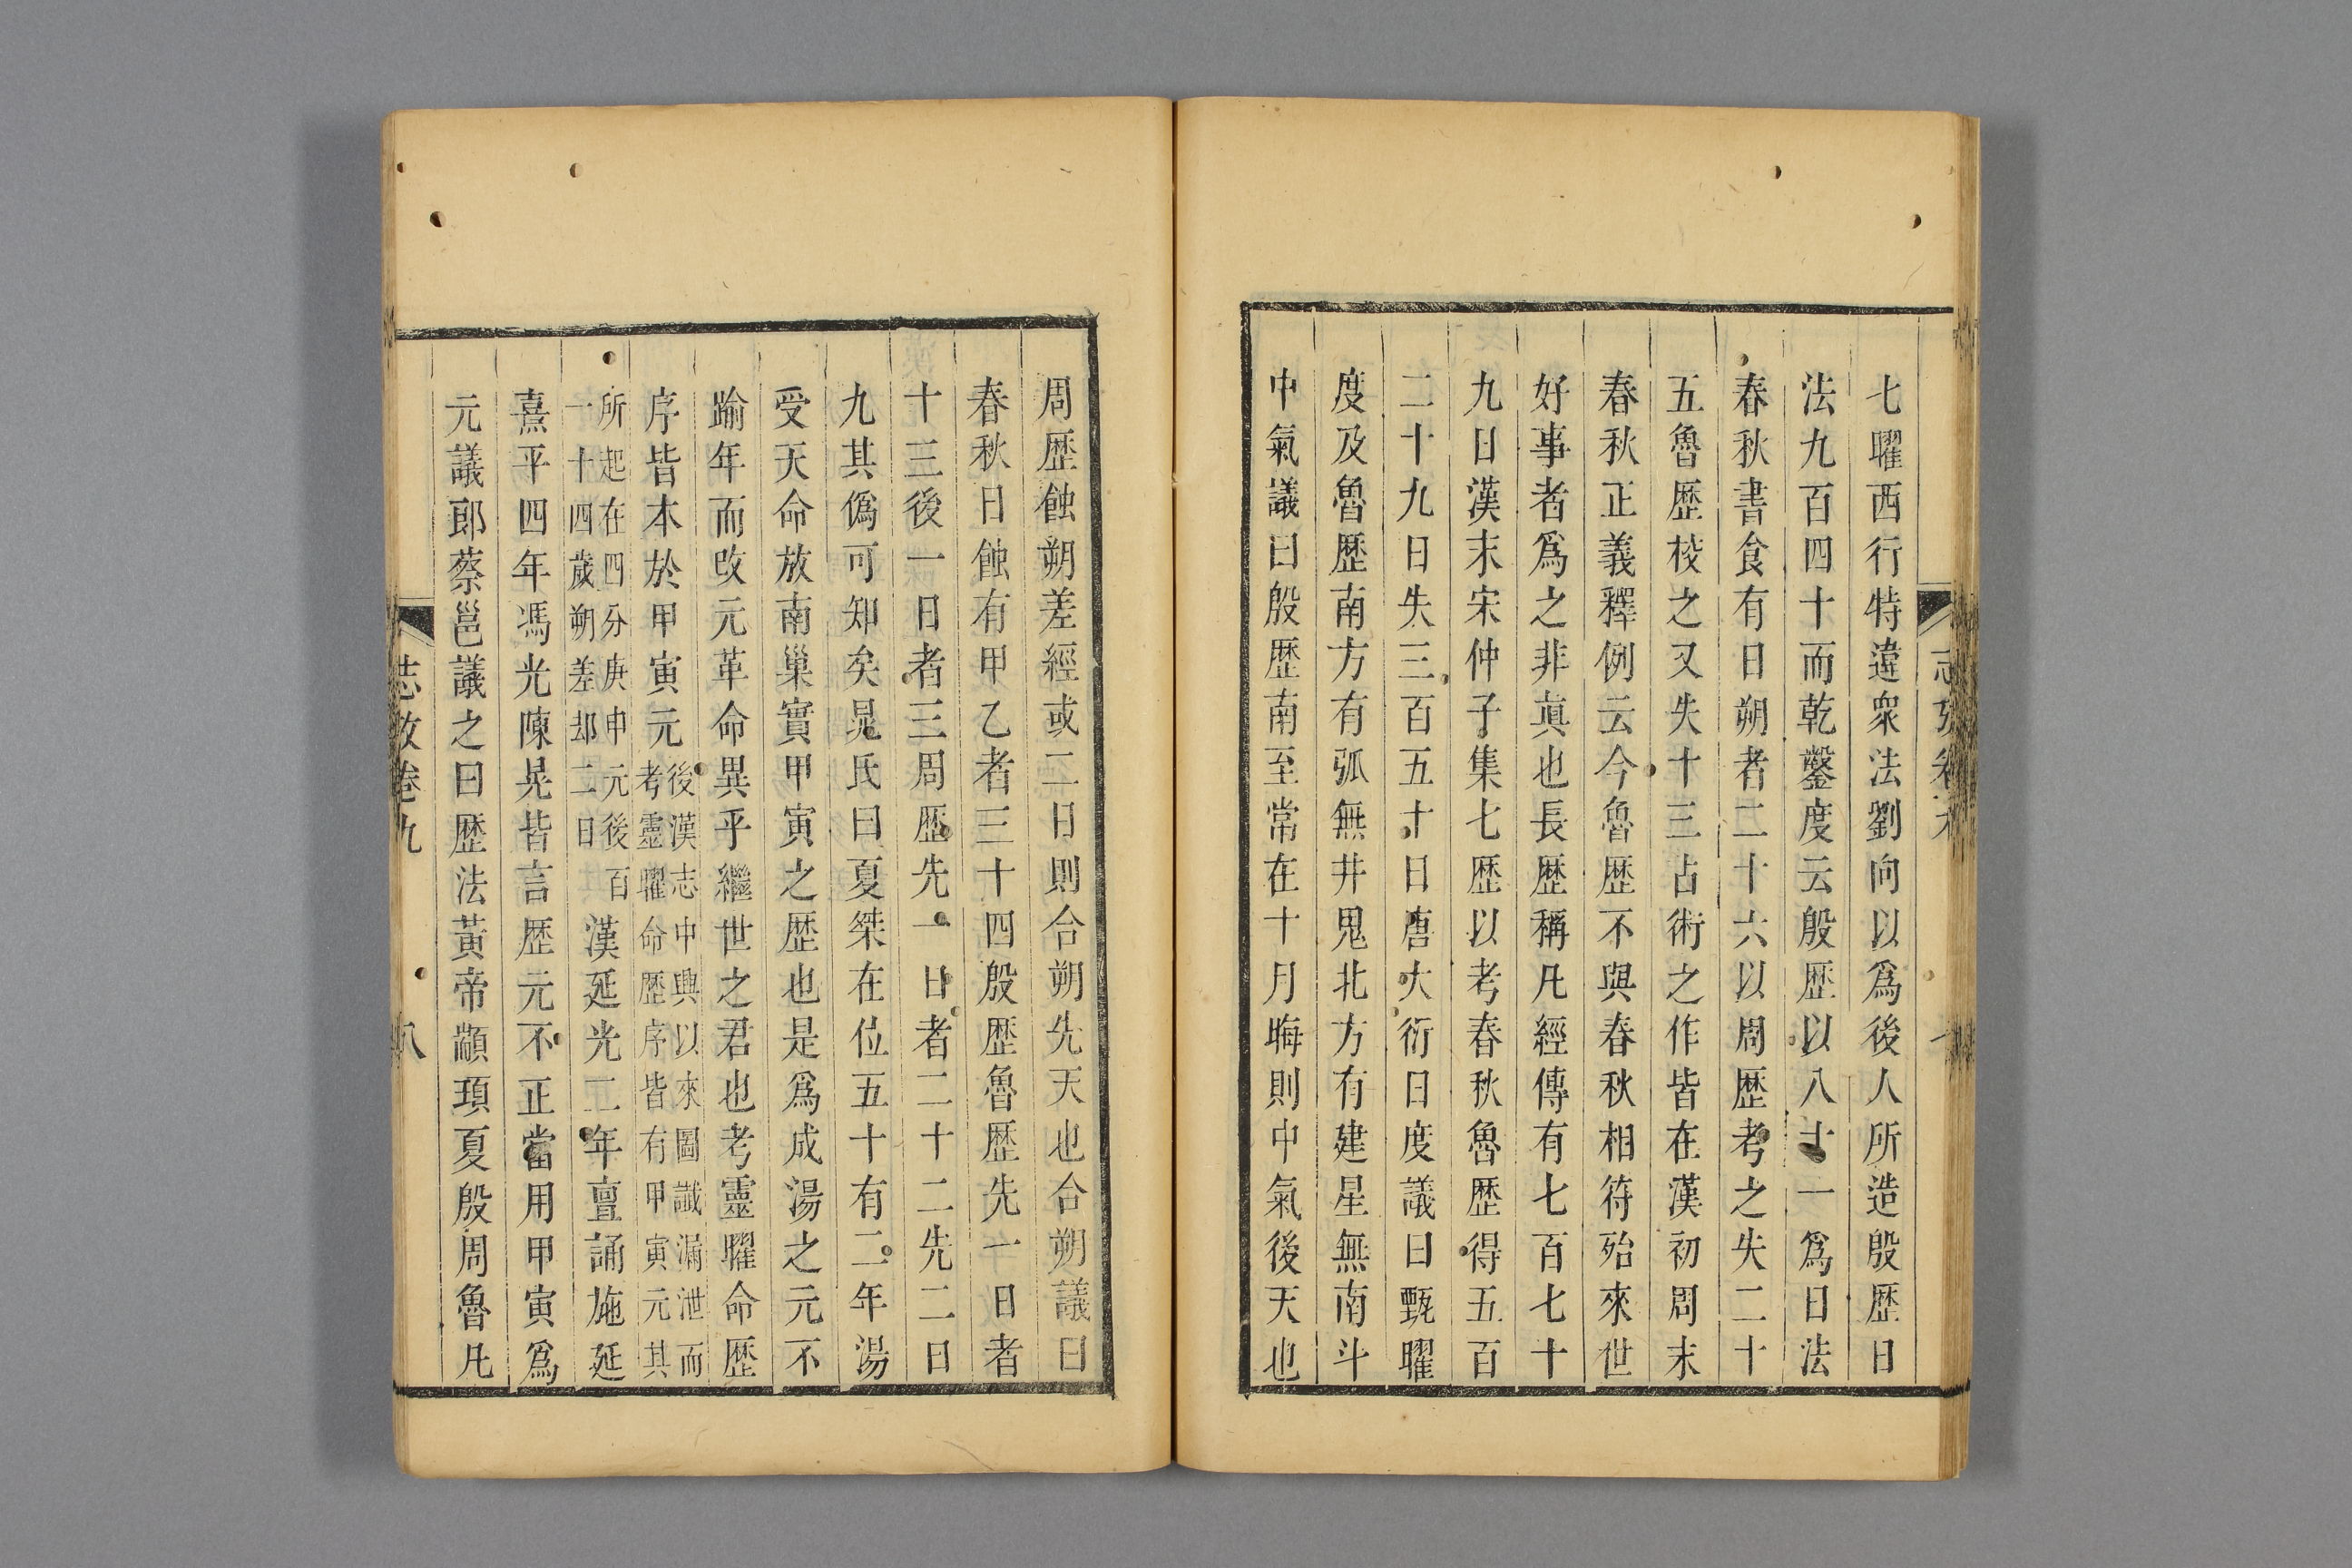 七曜西行特違衆法劉向以爲後人所造殷歷日
法九百四十而乾鑿度云殷歷以八十一爲日法
春秋書食有日朔者二十六以周歷考之失二十
五魯歷校之又失十三占術之作皆在漢初周末
春秋正義釋例云今魯歷不與春秋相符殆來世
好事者爲之非眞也長歷稱凡經傳有七百七十
九日漢末宋仲子集七歷以考春秋魯歷得五百
二十九日失三百五十日唐大衍日度議曰甄曜
度及魯歷南方有弧無井鬼北方有建星無南斗
中氣議曰殷歷南至常在十月晦則中氣後天也
周歷蝕朔差經或二日則合朔先天也合朔議曰
春秋日蝕有甲乙者三十四殷歷魯歷先一日者
十三後一日者三周歷先一日者二十二先二日
九其僞可知矣晁氏曰夏桀在位五十有二年湯
受天命放南巢實甲寅之歷也是爲成湯之元不
踰年而改元革命異乎繼世之君也考靈曜命歷
序皆本於甲寅元後漢志中興以來圖讖漏泄而
考靈曜命歷序皆有甲寅元其
所起在四分庚申元後百
一十四歲朔差却二日漢延光二年亶誦施延
熹平四年馮光陳晃皆言歷元不正當用甲寅爲
元議郎蔡邕議之曰歷法黃帝顓頊夏殷周魯凡
志攷卷九 八